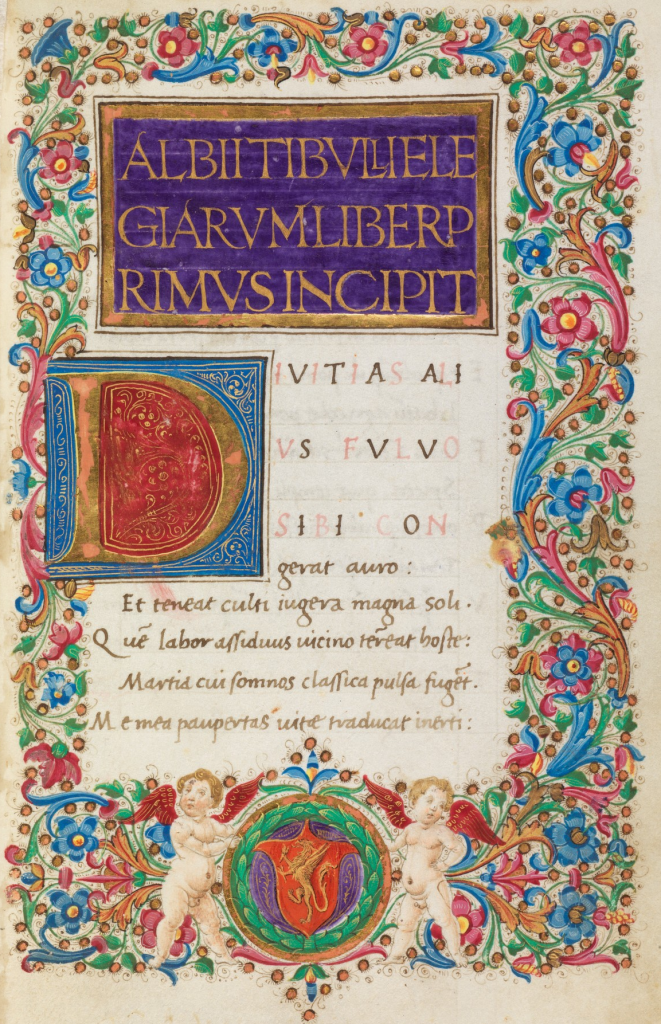 ALBII TIBVLLI ELE
GIARVM LIBER P
RIMVS INCIPIT
DIVITIAS ALI
VS FVLVO
SIBI CON
gerat auro :
Et teneat culti iugera magna soli .
Quẽ labor assiduus uicino terreat hoste :
Martia cui somnos classica pulsa fugẽt .
Me mea paupertas uitæ traducat inerti :